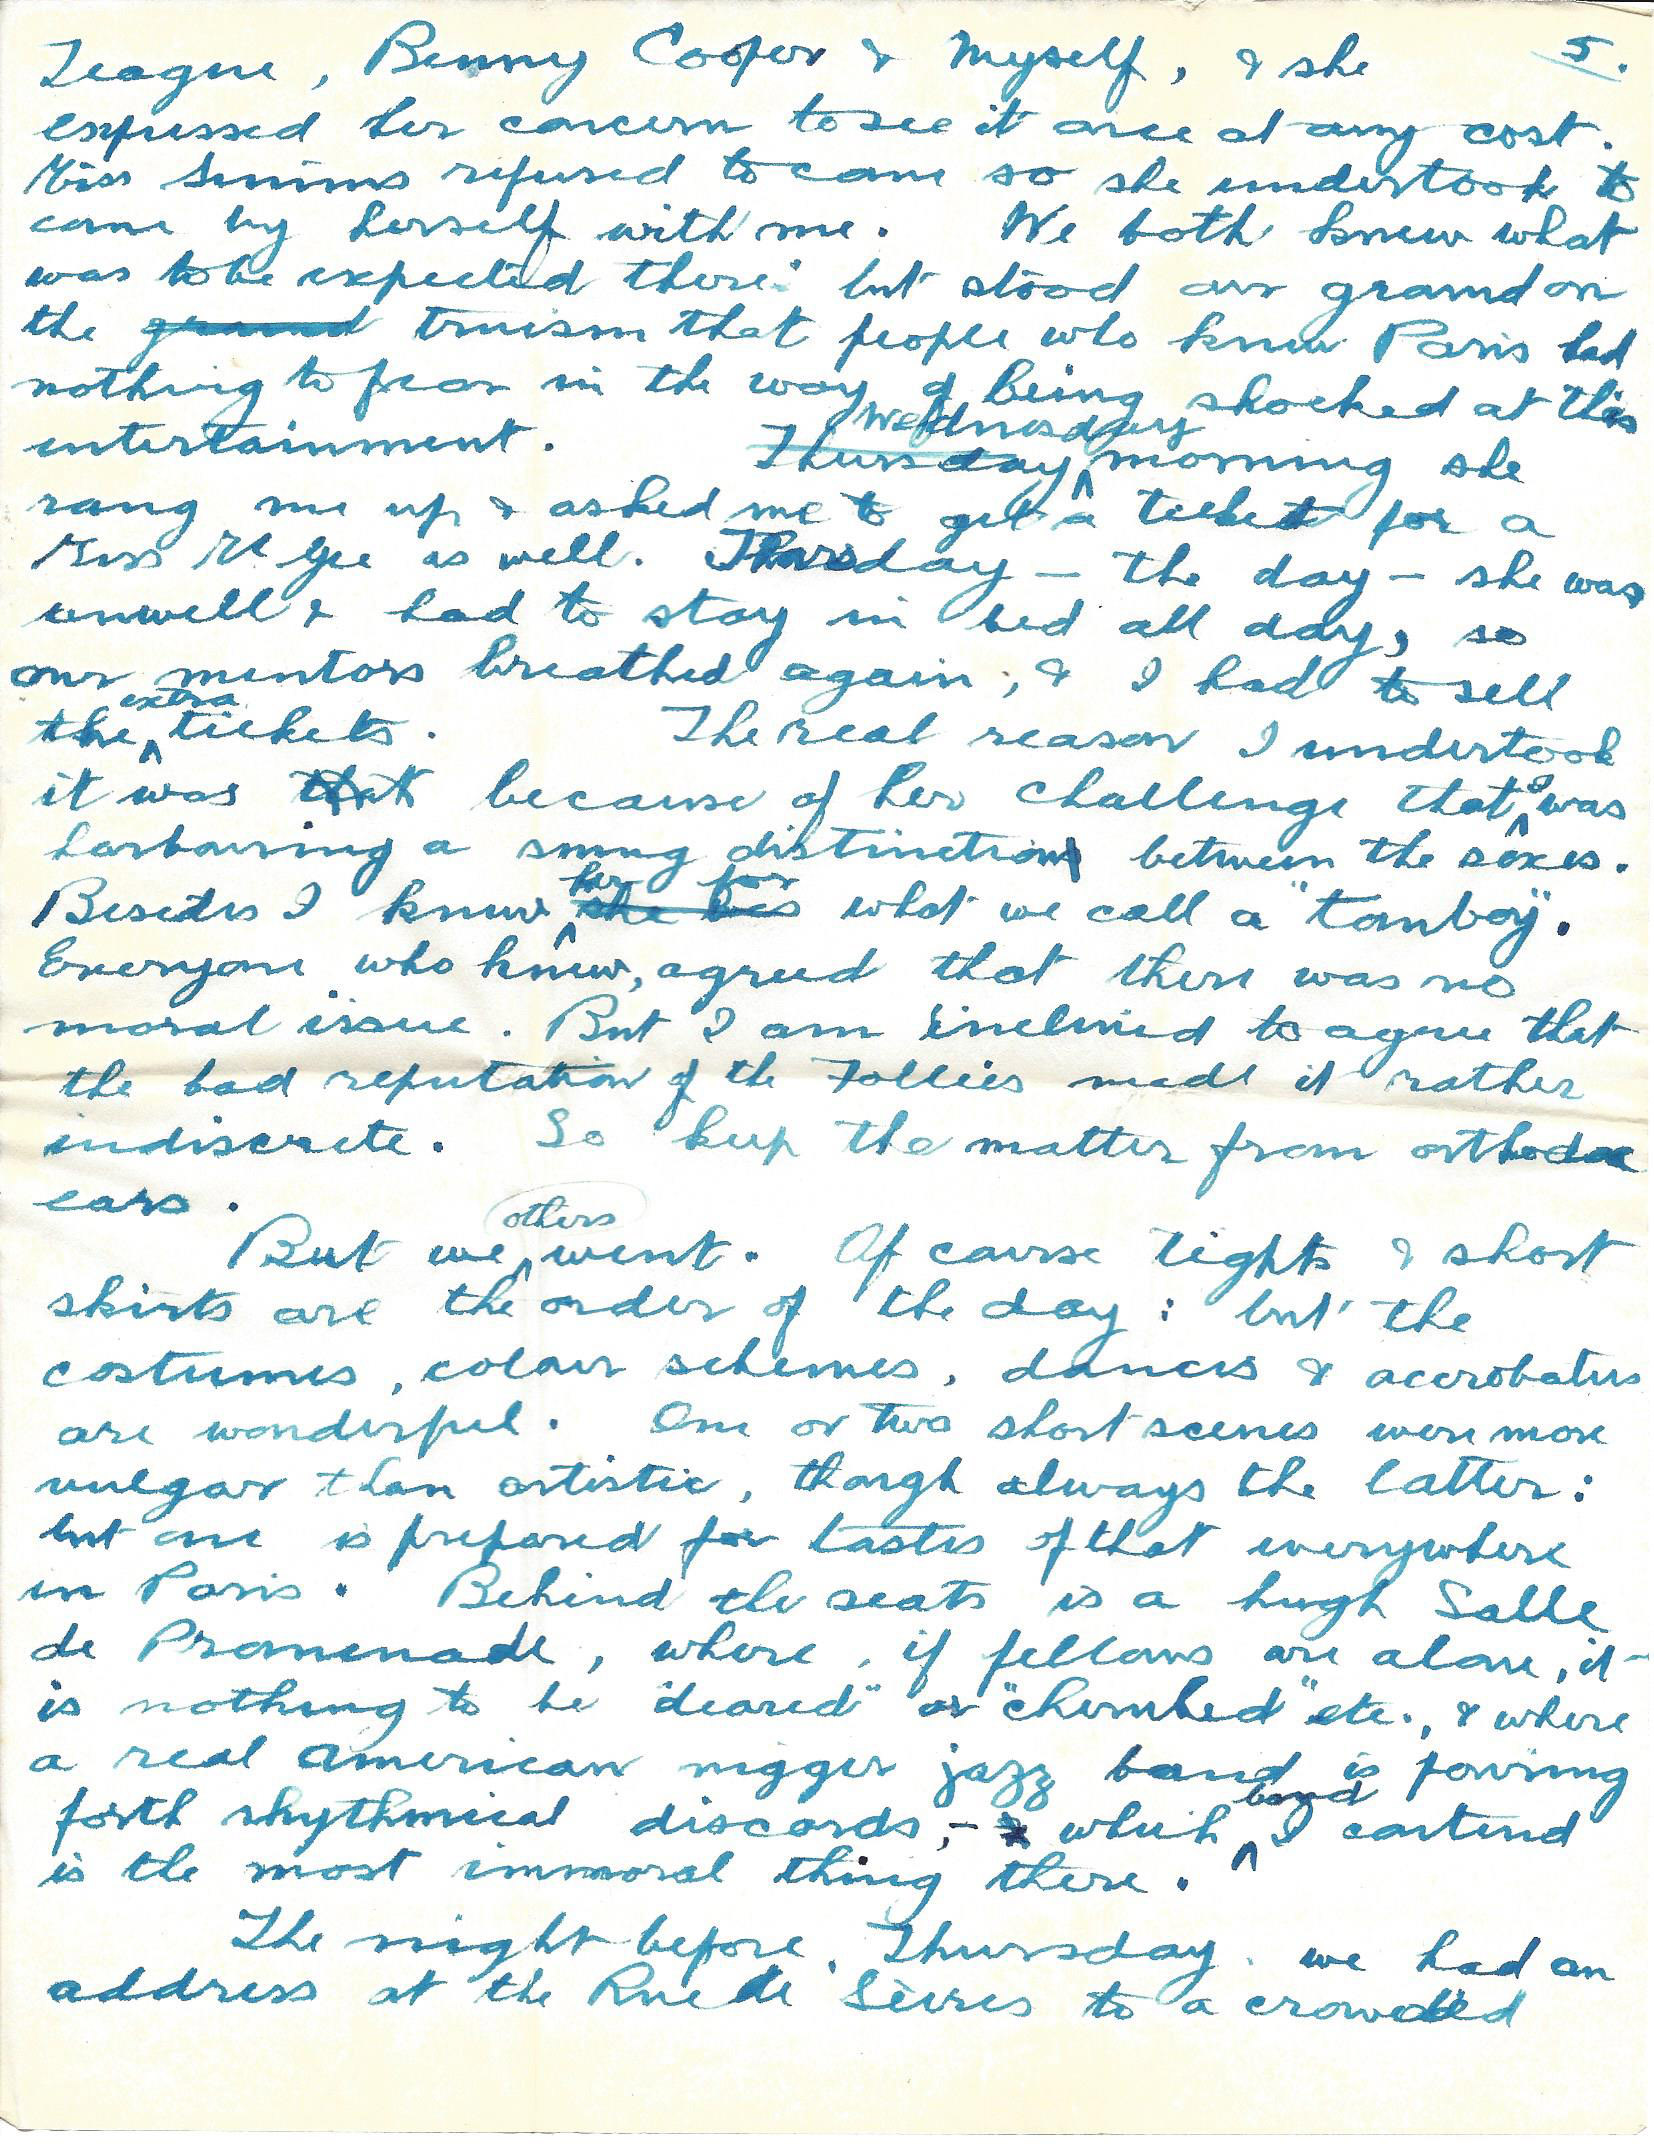 5.
Teague, Benny Cooper & Myself, & she
expressed her concern to see it once at any cost.
Miss Simms refused to come so she undertook to
come by herself with me. We both knew what
was to be expected there: but stood our ground on
the ground truism that people who knew Paris had
nothing to fear in the way of being shocked at this
entertainment. Thursday Wednesday morning she
rang me up & asked me to get a ticket for a
Miss McGee as well. Thursday - the day - she was
unwell & had to stay in bed all day, so
our mentors breathed again, & I had to sell
the extra tickets. The real reason I undertook
it was that because of her challenge that I was
harbouring a smug distinction between the sexes.
Besides I knew she was her for what we call a "tomboy".
Everyone who knew, agreed that there was no
moral issue. But I am inclined to agree that
the bad reputation of the Follies made it rather
indiscrete. So keep the matter from orthodox
ears.
But we others went. Of course tights & short
skirts are the order of the day: but the
costumes, colour schemes, dances & accrobatics
are wonderful. One or two short scenes were more
vulgar than artistic, though always the latter:
but one is prepared for tastes of that everywhere
in Paris. Behind the seats is a hugh Salle
de Promenade, where, if fellows are alone, it
is nothing to be "deared" or "cherubed" etc., & where
a real American nigger jazz band is pouring
forth rhythmical discords, - which band I contend
is the most immoral thing there.
The night before, Thursday, we had an
address at the Rue de Sèvres to a crowded